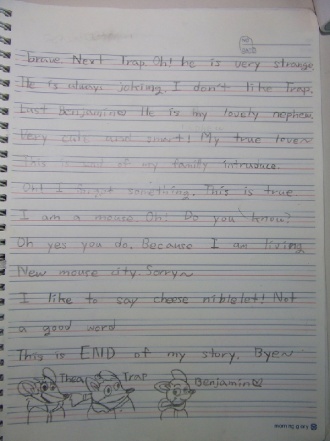 brave. Next Trap. Oh! he is very strange
He is always joking. I don't like Trap.
Last Benjamine. He is my lovely nephew.
Very cute and smart! My true love~
This is end of my family introduce.
Oh! I forgot something. This is true.
I am a mouse. Oh! Do you know?
Oh yes you do. Because I am living
New mouse city. Sorry~
I like to say cheese niblelet! Not
a good word
This is END of my story. Bye~
Thea Trap Benjamin